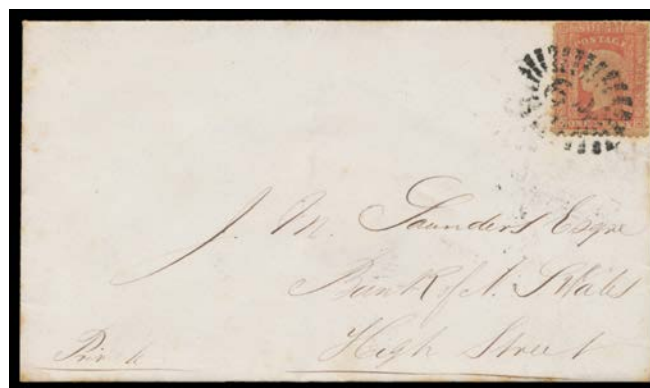 POSTAGE
J. M. Saunders Esqre
Bank of N. S Wales
High Street
Private